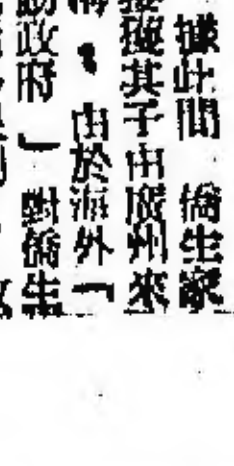 據此間 僑生家
接獲其子由廣州來
、由於海外「
政府」對僑生